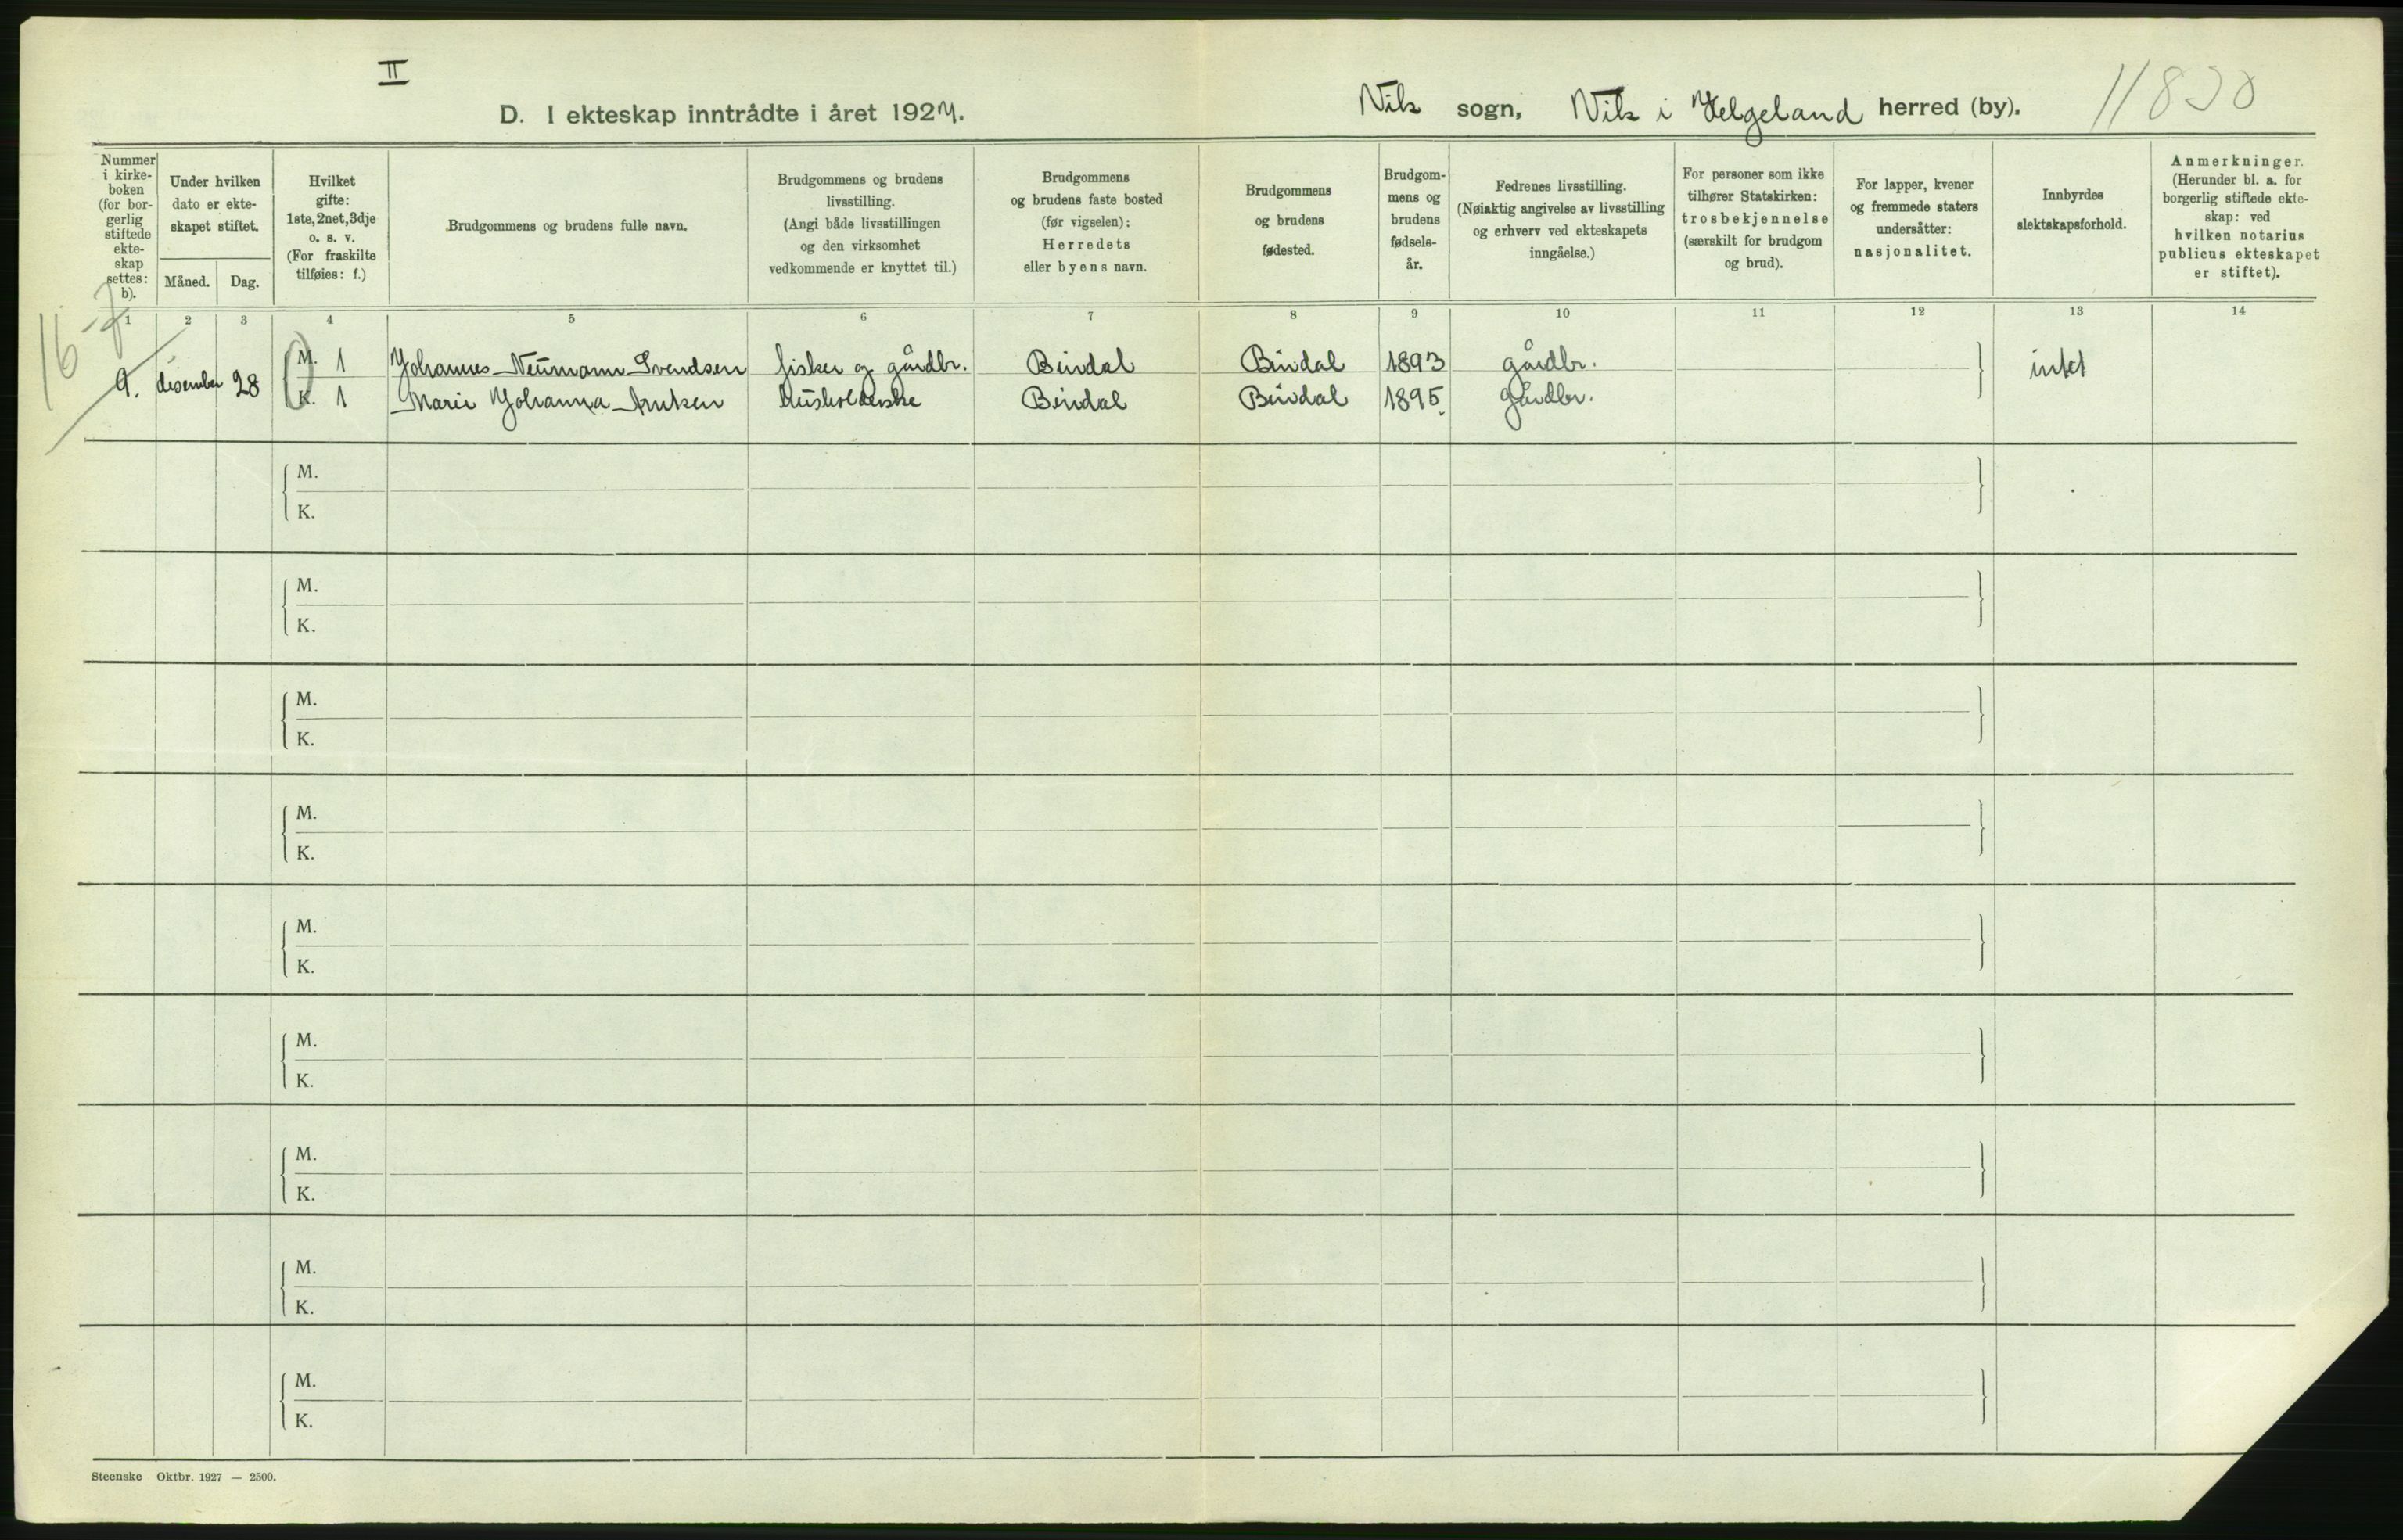 II
D. I ekteskap inntrådte i året 1927.
Vik sogn, Vik i Helgeland herred (by).
Nummer i kirke-boken (for bor-gerlig stiftede ekte-skap settes: b).
Under hvilken dato er ekte-skapet stiftet.
Måned. Dag.
Hvilket gifte: 1ste, 2net, 3dje o. s. v. (For fraskilte tilføies: f.)
Brudgommens og brudens fulle navn.
Brudgommens og brudens livsstilling. (Angi både livsstillingen og den virksomhet vedkommende er knyttet til.)
Brudgommens og brudens faste bosted (før vigselen): Herredets eller byens navn.
Brudgommens og brudens fødested.
Brudgom-mens og brudens fødsels-år.
Fedrenes livsstilling. (Nøiaktig angivelse av livsstilling og erhverv ved ekteskapets inngåelse.)
For personer som ikke tilhører Statskirken: trosbekjennelse (særskilt for brudgom og brud).
For lapper, kvener og fremmede staters undersåtter: nasjonalitet.
Innbyrdes slektskapsforhold.
Anmerkninger. (Herunder bl. a. for borgerlig stiftede ekte-skap: ved hvilken notarius publicus ekteskapet er stiftet).
1 2 3 4 5 6 7 8 9 10 11 12 13 14
9. desember 28 M. 1 Johannes Neumann Svendsen fisker og gårdbr. Bindal Bindal 1893 gårdbr. intet
K. 1 Marie Johanna husholderske Bindal Bindal 1895 gårdbr.
M.
K.
M.
K.
M.
K.
M.
K.
M.
K.
M.
K.
M.
K.
M.
K.
M.
K.
Steenske Oktbr. 1927 — 2500.